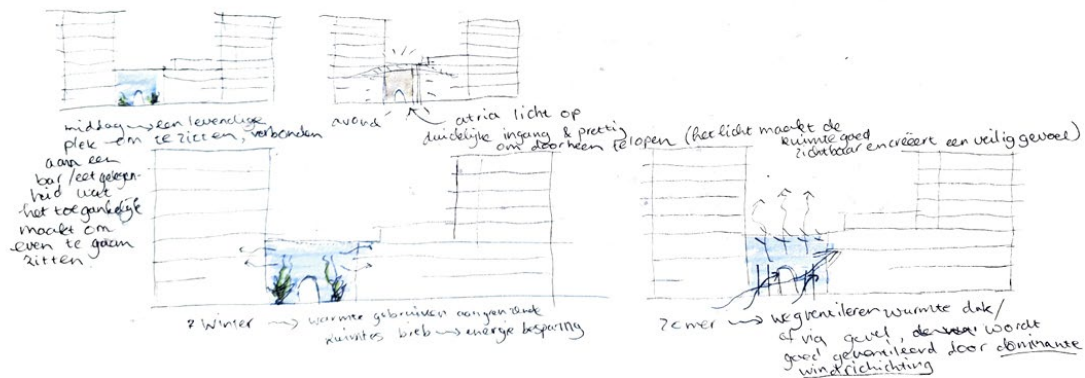 middag → een levendige
plek om te zitten, verbonden
aan een
bar/eetgelegen-
heid wat
het toegankelijk
maakt om
even te gaan
zitten.
avond
atria licht op
duidelijke ingang & prettig
om doorheen te lopen (het licht maakt de
ruimte goed
zichtbaar en creëert een veilig gevoel)
Winter → warmte gebruiken aangrenzende
ruimtes bieb → energie besparing
Zomer → wegventileren warmte dak/
of via gevel, wordt
goed geventileerd door dominante
windrichichting